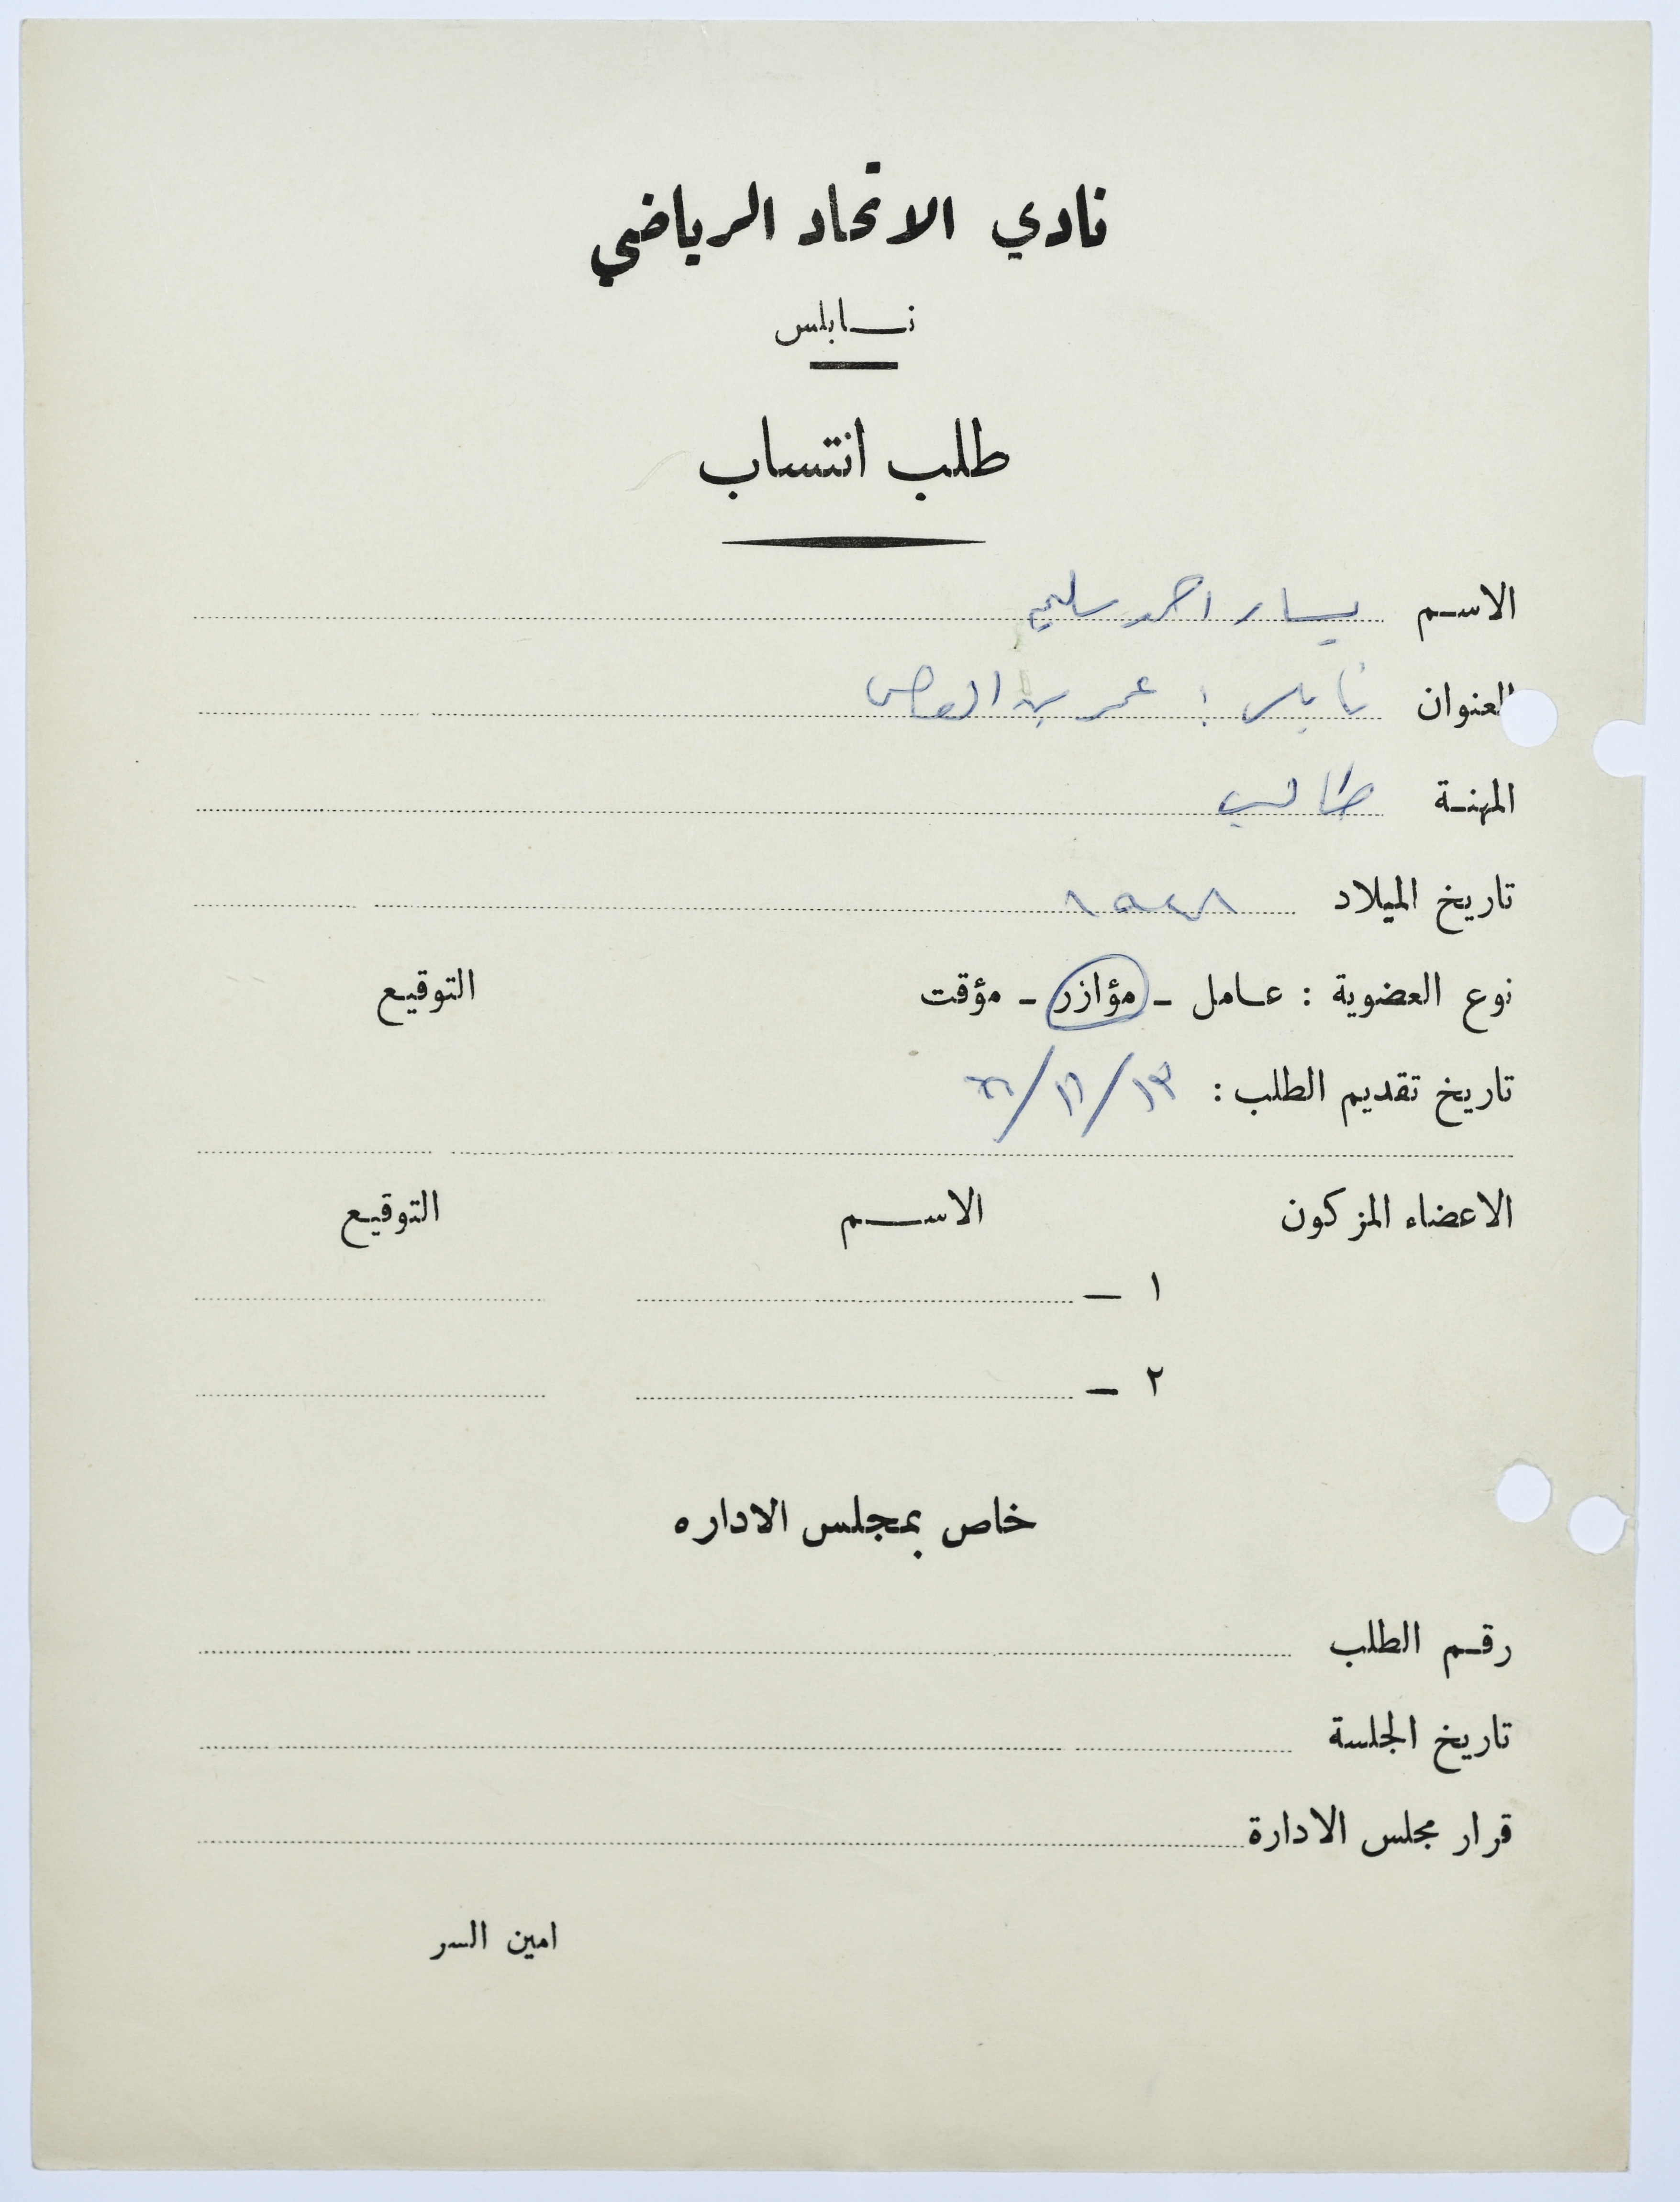 نادي الاتحاد الرياضي
نابلس
طلب انتساب
الاسم يسار احمد سليم
العنوان نابلس : عمر بن العاص
المهنة طالب
تاريخ الميلاد
نوع العضوية : عامل - مؤازر - مؤقت التوقيع
تاريخ تقديم الطلب :
الاعضاء المزكون الاسم التوقيع
١ -
٢ -
خاص بمجلس الاداره
رقم الطلب
تاريخ الجلسة
قرار مجلس الادارة
امين السر